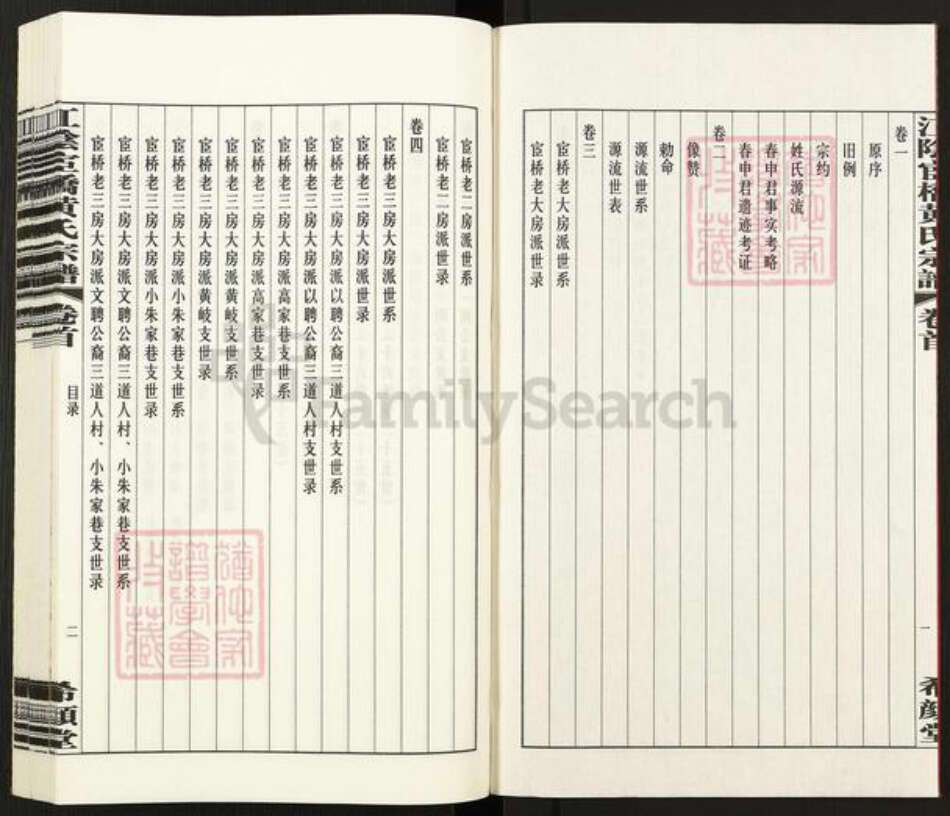 卷一
原序
旧例
宗约
姓氏源流
春申君事实考略
春申君遗迹考证
卷二
像赞
勅命
源流世系
源流世表
卷三
宦桥老大房派世系
宦桥老大房派世录
宦桥老二房派世系
宦桥老二房派世录
卷四
宦桥老三房大房派世系
宦桥老三房大房派世录
宦桥老三房大房派以聘公裔三道人村支世系
宦桥老三房大房派以聘公裔三道人村支世录
宦桥老三房大房派高家巷支世系
宦桥老三房大房派高家巷支世录
宦桥老三房大房派黄岐支世系
宦桥老三房大房派黄岐支世录
宦桥老三房大房派小朱家巷支世系
宦桥老三房大房派小朱家巷支世录
宦桥老三房大房派文聘公裔三道人村、小朱家巷支世系
宦桥老三房大房派文聘公裔三道人村、小朱家巷支世录
目录
二
江陰宦橋黃氏宗譜 卷首
希顔堂
FamilySearch